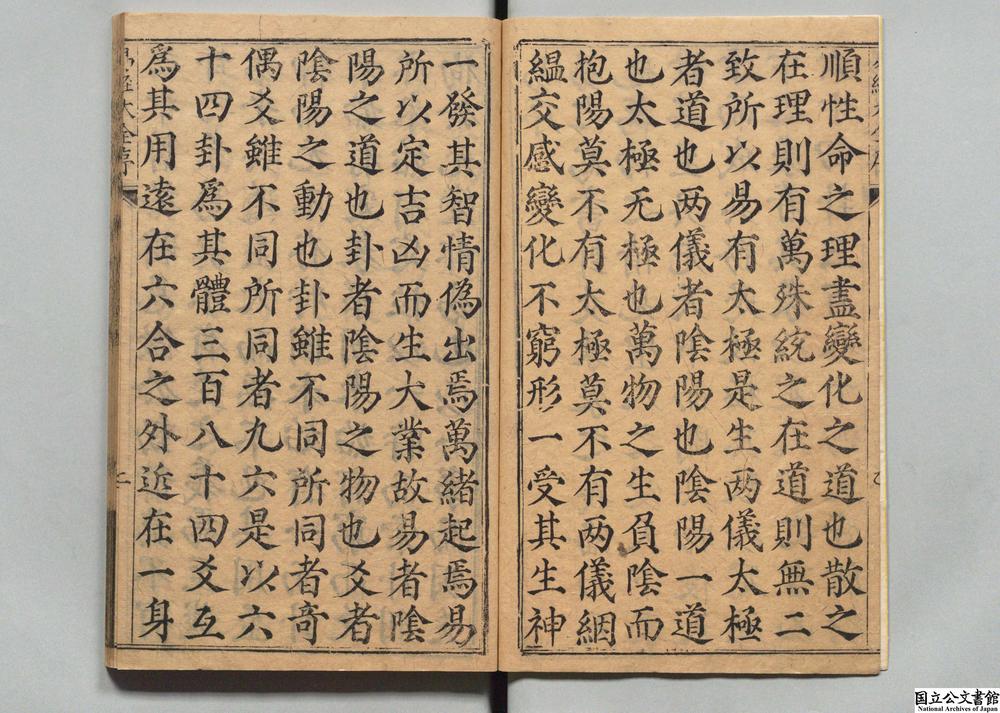 順性命之理盡變化之道也散之
在理則有萬殊統之在道則無二
致所以易有太極是生两儀太極
者道也两儀者陰陽也陰陽一道
也太極无極也萬物之生負陰而
抱陽莫不有太極莫不有两儀絪
縕交感變化不窮形一受其生神
一發其智情僞出焉萬緒起焉易
所以定吉凶而生大業故易者陰
陽之道也卦者陰陽之物也爻者
陰陽之動也卦雖不同所同者奇
偶爻雖不同所同者九六是以六
十四卦爲其體三百八十四爻互
爲其用遠在六合之外近在一身
易經大全序
二
国立公文書館
National Archives of Japan